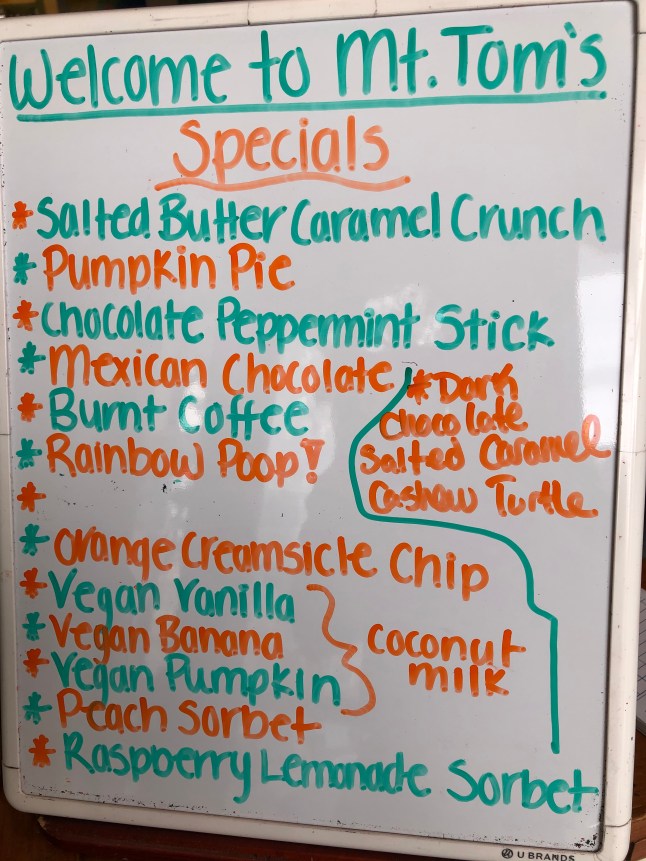 Welcome to Mt. Tom's
Specials
* Salted Butter Caramel Crunch
* Pumpkin Pie
* Chocolate Peppermint Stick
* Mexican Chocolate
* Burnt Coffee
* Rainbow Poop!
*
* Dark
Chocolate
Salted Caramel
Cashew Turtle
* Orange Creamsicle Chip
* Vegan Vanilla
* Vegan Banana
* Vegan Pumpkin
coconut
milk
* Peach Sorbet
* Raspberry Lemonade Sorbet
U BRANDS